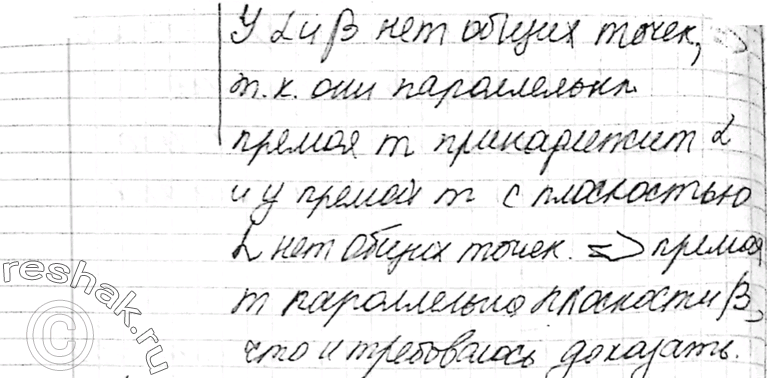 У α и β нет общих точек, =>
т.к. они параллельны.
прямая m принадлежит α
и у прямой m с плоскостью
α нет общих точек. => прямая
m параллельна плоскости β,
что и требовалось доказать.
reshak.ru
©